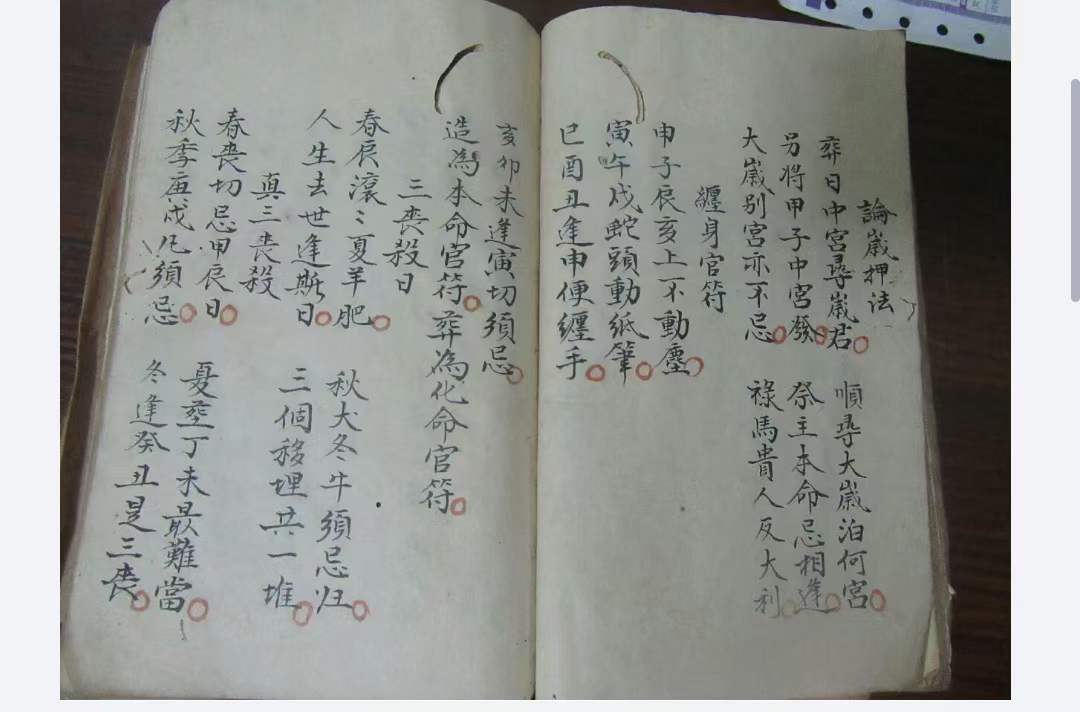 論嵗押法
葬日中宮尋嵗君 順尋大嵗泊何宮
另将甲子中宮發 祭主本命忌相逢
大嵗别宮亦不忌 祿馬貴人反大利
纏身官符
申子辰亥上不動塵
寅午戌蛇頭動紙筆
巳酉丑逢申便纏手
亥卯未逢寅切須忌
造為本命官符葬為化命官符
三丧殺日
春辰滾〻夏羊肥 秋犬冬牛須忌归
人生去世逢斯日 三個移埋共一堆
真三丧殺
春丧切忌甲辰日 憂塟丁未最難當
秋季庚戍凡須忌 冬逢癸丑是三丧